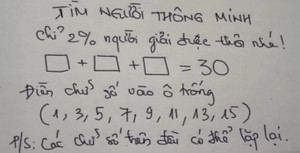 TÌM NGƯỜI THÔNG MINH
Chỉ 2% người giải được thôi nhé!
□ + □ + □ = 30
Điền chữ số vào ô trống
(1, 3, 5, 7, 9, 11, 13, 15)
P/S: Các chữ số trên đều có thể lặp lại.